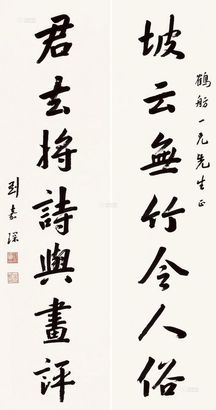 鶴舫一兄先生正
坡云無竹令人俗
君玄將詩與畫評
劉嘉琛